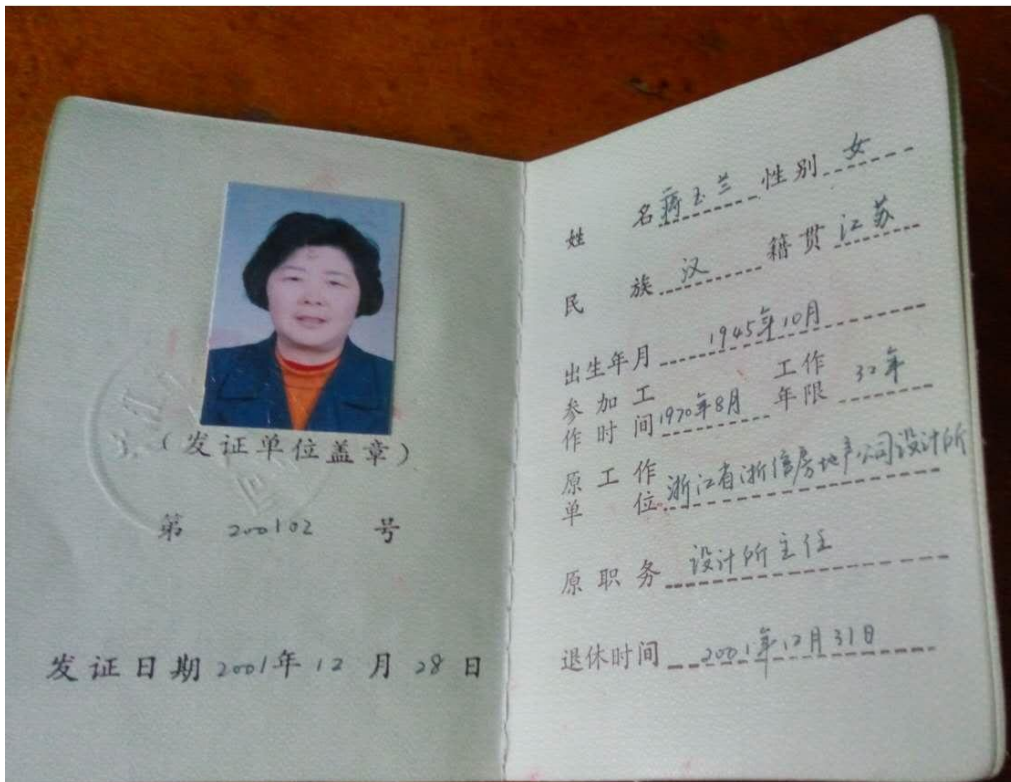 (发证单位盖章)
第 200102 号
发证日期 2001年 12 月 28 日
姓 名 蒋玉兰 性别 女
民 族 汉 籍贯 江苏
出生年月 1945年10月
参加工作时间 1970年8月 工作年限 32年
原工作单位 浙江省浙信房地产公司设计所
原职务 设计所主任
退休时间 2001年12月31日